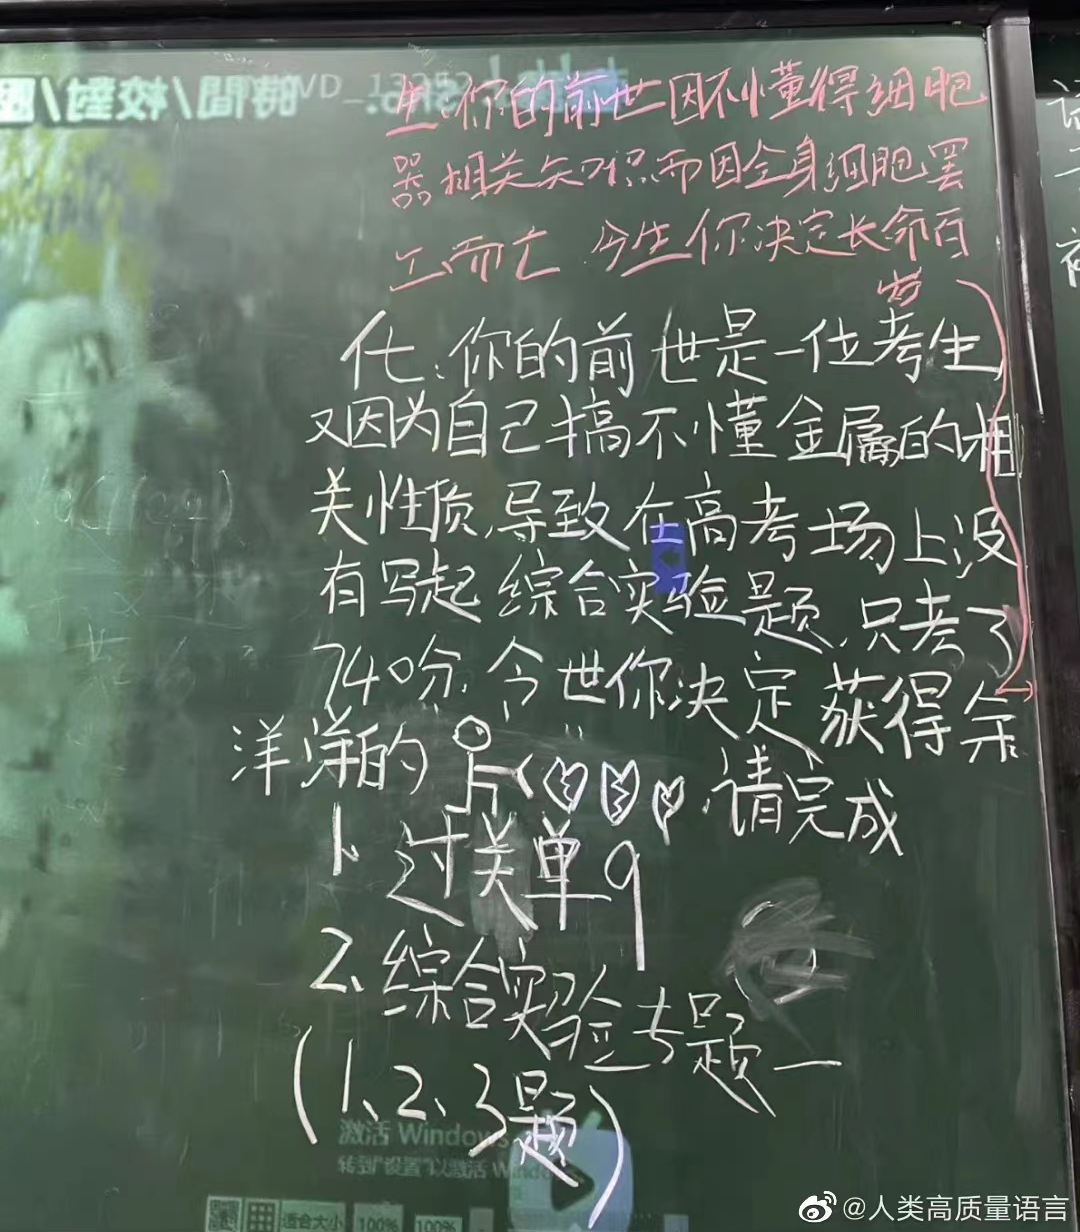 生:你的前世因不懂得细胞
器相关知识而因全身细胞罢
工而亡.今生你决定长命百
岁
化:你的前世是一位考生,
又因为自己搞不懂金属的相
关性质,导致在高考场上没
有写起综合实验题,只考了
740分.今世你决定获得余
洋洋的
,请完成
1、过关单9
2、综合实验专题一
(1、2、3题)
激活 Windows
转到"设置"以激活 Wind
适合大小 100% 100%
時間/校對/
@人类高质量语言